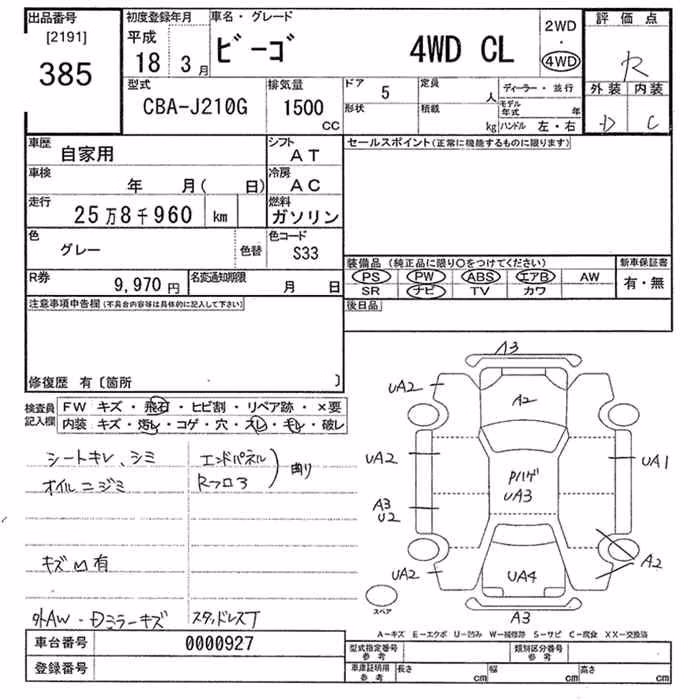 出品番号
[2191]
385
初度登録年月
平成
18 3月
車名・グレード
ビーゴ 4WD CL
2WD
・
4WD
評価点
R
外装 内装
D C
型式
CBA-J210G
排気量
1500
CC
ドア 5
形状
定員 人
積載 kg
ディーラー・並行
モデル年式 年
ハンドル 左・右
車歴
自家用
シフト
AT
車検
年 月( 日)
冷房
AC
走行
25万8千960 km
燃料
ガソリン
色
グレー
色替
色コード
S33
R券
9,970円
名変通知期限
月 日
セールスポイント(正常に機能するものに限ります)
装備品 (純正品に限り○をつけてください)
PS PW ABS エアB AW
SR ナビ TV カワ
新車保証書
有・無
後日品
注意事項申告欄(不具合内容等は具体的に記入して下さい)
修復歴 有〔箇所 〕
検査員
記入欄
FW キズ・飛石・ヒビ割・リペア跡・×要
内装 キズ・汚レ・コゲ・穴・スレ・キレ・破レ
シートキレ、シミ
オイルニジミ
エンドパネル
Rフロア
曲り
キズ凹有
外AW・Dミラーキズ
スタッドレスT
A3
UA2
A2
UA2
UA1
Pハゲ
UA3
A3
U2
UA2
A2
UA4
A3
スペア
A-キズ E-エクボ U-凹み W-補修跡 S-サビ C-腐食 XX-交換済
車台番号
0000927
登録番号
型式指定番号
参考
類別区分番号
参考
車庫証明用
参考
長さ cm
幅 cm
高さ cm